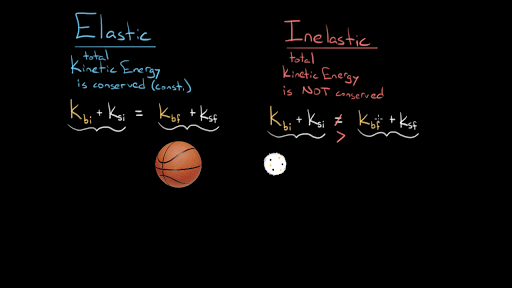 Elastic
total
Kinetic Energy
is conserved (const.)
Kbi + Ksi = Kbf + Ksf
Inelastic
total
Kinetic Energy
is NOT conserved
Kbi + Ksi ≠ Kbf + Ksf
>